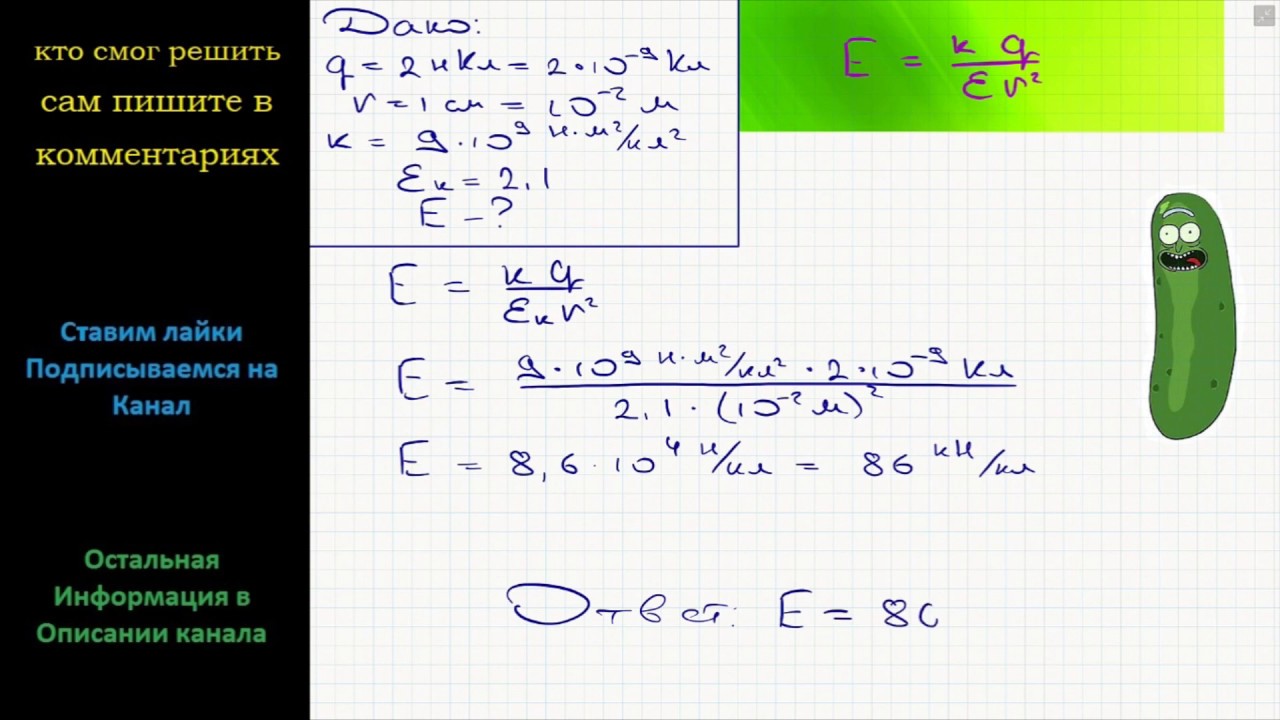 кто смог решить
сам пишите в
комментариях
Ставим лайки
Подписываемся на
Канал
Остальная
Информация в
Описании канала
Дано:
q = 2 нКл = 2·10⁻⁹ Кл
r = 1 см = 10⁻² м
к = 9·10⁹ Н·м²/Кл²
εк = 2,1
E – ?
E = к q / ε r²
E = к q / εк r²
E = 9·10⁹ Н·м²/Кл² · 2·10⁻⁹ Кл / 2,1 · (10⁻² м)²
E = 8,6·10⁴ Н/Кл = 86 кН/Кл
Ответ: E = 8